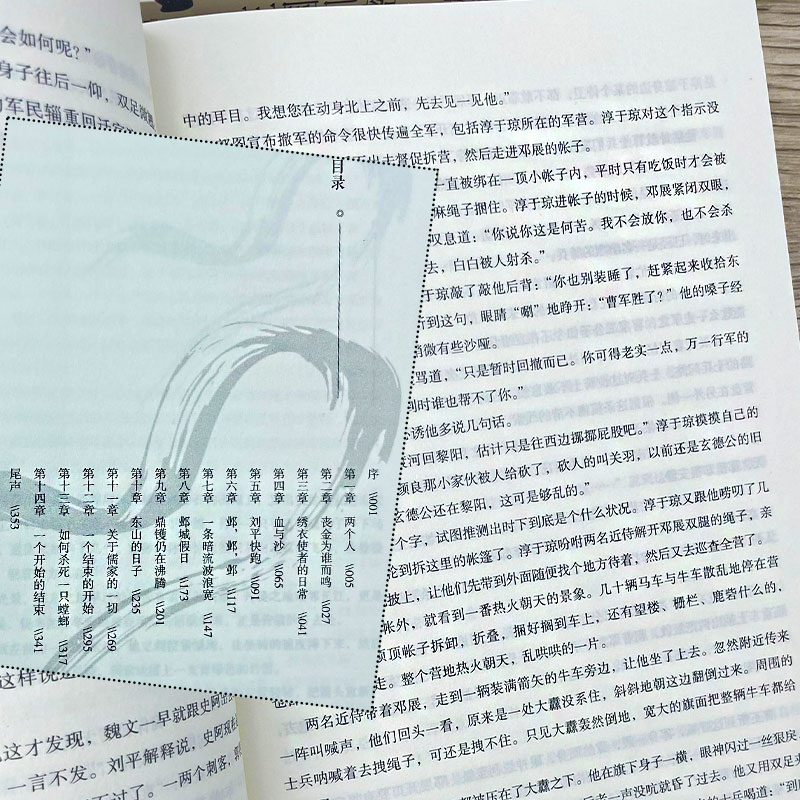 会如何呢？”
身子往后一仰，双足
军民辎重回迁
中的耳目。我想您在动身北上之前，先去见一见他。”
图宣布撤军的命令很快传遍全军，包括淳于琼所在的军营。淳于琼对这个指示没
去督促拆营，然后走进邓展的帐子。
一直被绑在一顶小帐子内，平时只有吃饭时才会被
麻绳子捆住。淳于琼进帐子的时候，邓展紧闭双眼，
叹息道：“你说你这是何苦。我不会放你，也不会杀
去，白白被人射杀。”
于琼敲了敲他后背：“你也别装睡了，赶紧起来收拾东
听到这句，眼睛“唰”地睁开：“曹军胜了？”他的嗓子经
稍微有些沙哑。
骂道，“只是暂时回撤而已。你可得老实一点，万一行军的
到时谁也帮不了你。”
诱他多说几句话。
黄河回黎阳，估计只是往西边挪挪屁股吧。”淳于琼摸摸自己的
颜良那小家伙被人给砍了，砍人的叫关羽，以前还是玄德公的旧
玄德公还在黎阳，这可是够乱的。”
个字，试图推测出时下到底是个什么状况。淳于琼又跟他唠叨了几
轮到拆这里的帐篷了。淳于琼吩咐两名近侍解开邓展双腿的绳子，亲
坡上，让他们先带到外面随便找个地方待着，然后又去巡查全营了。
帐外，就看到一番热火朝天的景象。几十辆马车与牛车散乱地停在营
顶顶帐子拆卸，折叠，捆好搁到车上，还有望楼、栅栏、鹿砦什么的，
走。整个营地热火朝天，乱哄哄的一片。
两名近侍带着邓展，走到一辆装满箭矢的牛车旁边，让他坐了上去。忽然附近传来
一阵叫喊声，他们回头一看，原来是一处大纛没系住，斜斜地朝这边翻倒过来。周围的
士兵呐喊着去拽绳子，可还是拽不住。只见大纛轰然倒地，宽大的旗面把整辆牛车都给
都被压在了大纛之下。他在旗下身子一横，眼神闪过一丝狠厉
老一声没吭就昏了过去。他又用双足夹
士兵喝道：“到
目录
序 \001
第一章 两个人 \005
第二章 丧金为谁而鸣 \027
第三章 绣衣使者的日常 \041
第四章 血与沙 \065
第五章 刘平快跑 \091
第六章 邺、邺、邺 \117
第七章 一条暗流波浪宽 \147
第八章 邺城假日 \173
第九章 鼎镬仍在沸腾 \201
第十章 东山的日子 \235
第十一章 关于儒家的一切 \269
第十二章 一个结束的开始 \295
第十三章 如何杀死一只螳螂 \317
第十四章 一个开始的结束 \341
尾声 \353
这样说
这才发现，魏文一早就跟史阿
一言不发。刘平解释说，史阿
不过了。一两个刺客，